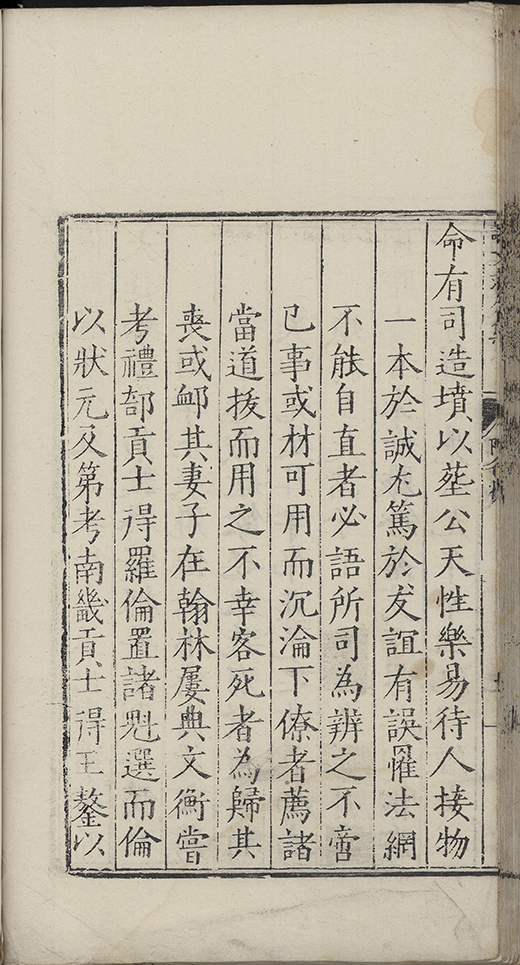 命有司造墳以塟公天性樂易待人接物
一本於誠尤篤於友誼有誤罹法網
不能自直者必語所司為辨之不啻
已事或材可用而沉淪下僚者薦諸
當道拔而用之不幸客死者為歸其
喪或衈其妻子在翰林屢典文衡嘗
考禮部貢士得羅倫置諸魁選而倫
以狀元及第考南畿貢士得王鏊以